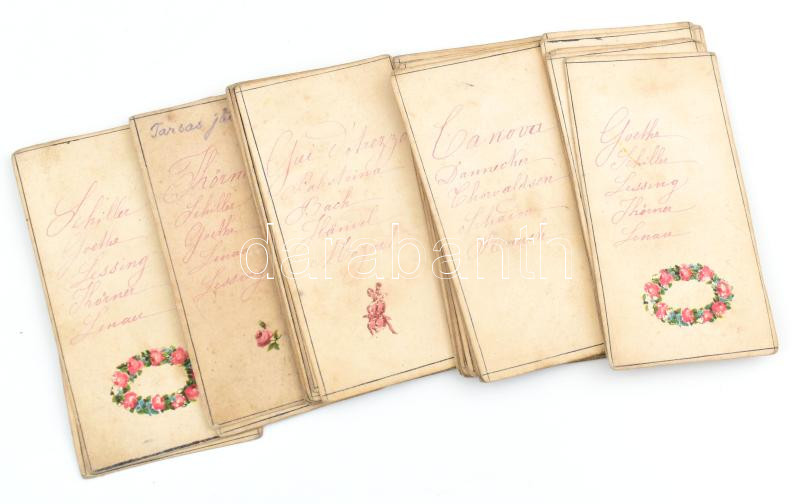 Schiller
Goethe
Lessing
Körner
Lenau
Tarsas
Körner
Schiller
Goethe
Lenau
Lessing
Gui d'Arezzo
Palestrina
Bach
Händel
Canova
Dannecker
Thorwaldson
Schadow
Rauch
Goethe
Schiller
Lessing
Körner
Lenau
darabanth